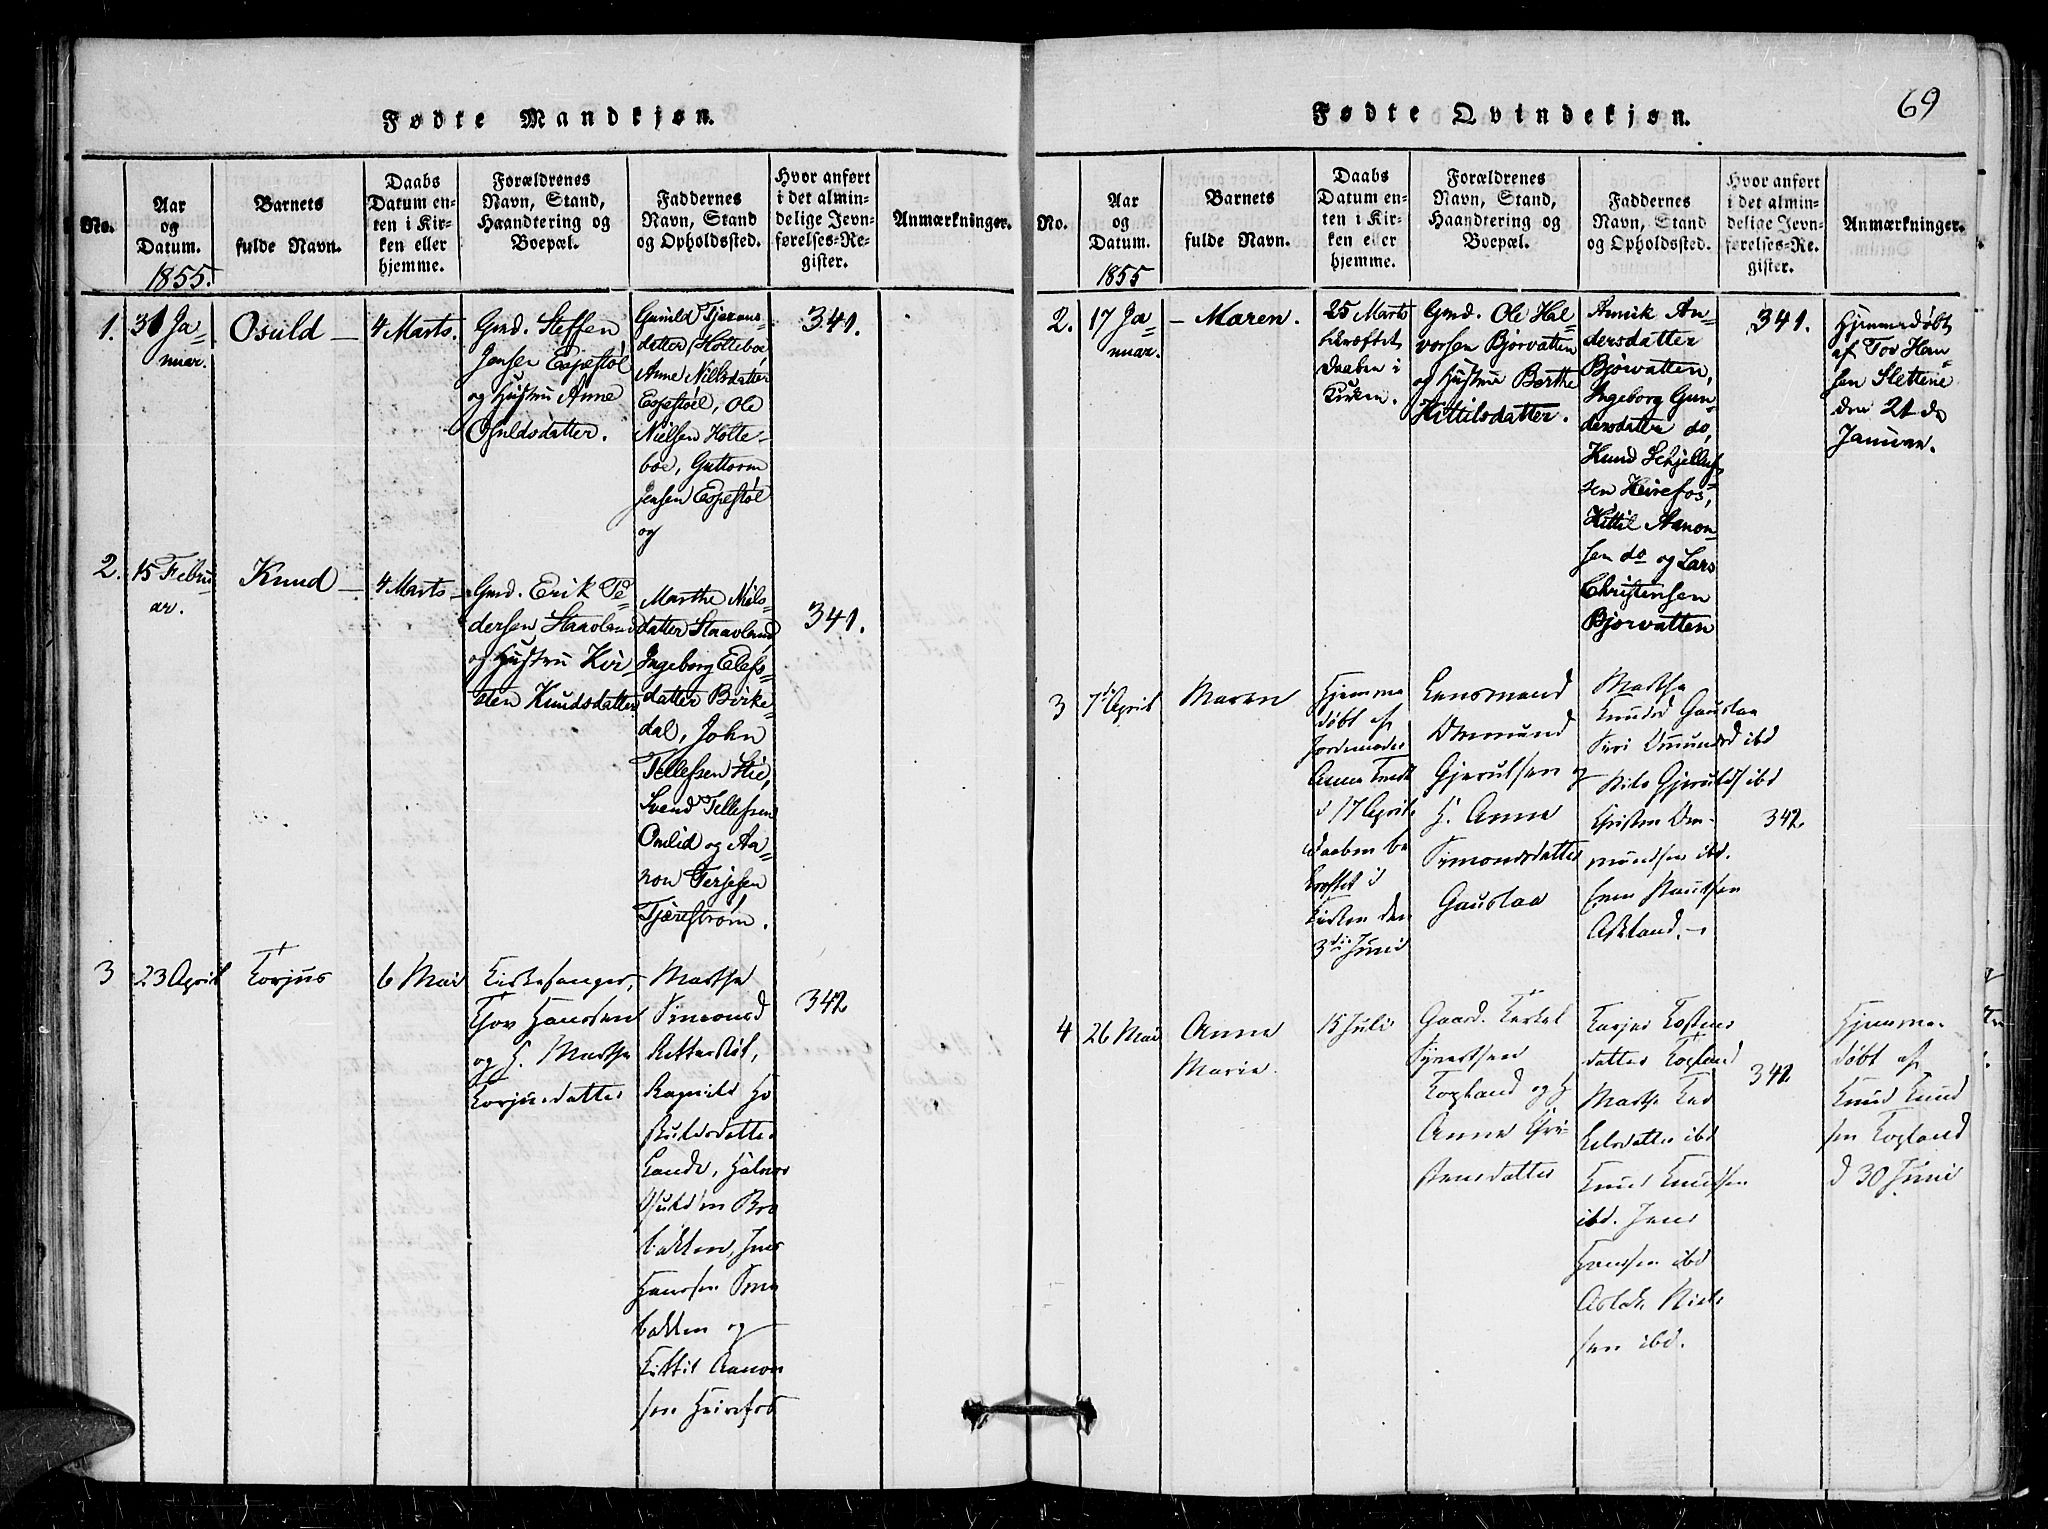 69
Fødte Mandkjøn.
No.
Aar
og
Datum.
1855.
Barnets
fulde Navn.
Daabs
Datum en-
ten i Kir-
ken eller
hjemme.
Forældrenes
Navn, Stand,
Haandtering og
Boepæl.
Faddernes
Navn, Stand
og Opholdssted.
Hvor anført
i det almin-
delige Jevn-
førelses-Re-
gister.
Anmærkninger.
1.
31 Ja-
nuar.
Osuld
4 Marts.
Gmd. Steffen
Jensen Espestøl
og Hustru Anne
Osuldsdatter.
Gunild
datter Holteboe
Anne Nielsdatter
Espestøl, Ole
Nielsen Holte-
boe, Guttorm
Jensen Espestøl
og
341.
2.
15 Febru-
ar.
Knud
4 Marts
Gmd. Erik Pe-
dersen Staavland
og Hustru Kir-
sten Knudsdatter
Marthe Niels-
datter Staavland,
Ingeborg Elefs-
datter Birke-
dal, John
Tellefsen Lie,
Svend Tellefsen
Omlid og Aa-
non Terjesen
Tjærestrøm.
341.
3
23 April
Torjus
6 Mai
Kirkesanger,
Thor Hanssen
og H. Marthe
Torjusdatter
Marthe
Simonsd
Ragnild
datter
Lande, Halvor
bakken, Jens
Hanssen
bakken og
Kittil Aanon
sen Heirefos
342
Fødte Qvindekjøn.
No.
Aar
og
Datum.
1855
Barnets
fulde Navn.
Daabs
Datum en-
ten i Kir-
ken eller
hjemme.
Forældrenes
Navn, Stand,
Haandtering og
Boepæl.
Faddernes
Navn, Stand
og Opholdssted.
Hvor anført
i det almin-
delige Jevn-
førelses-Re-
gister.
Anmærkninger.
2.
17 Ja-
nuar.
Maren.
25 Marts
bekræftet
Daaben i
Kirken.
Gmd. Ole Hal-
vorsen Bjorvatten
og Hustrue Berthe
Kittilsdatter.
Annik An-
dersdatter
Bjorvatten,
Ingeborg Gun-
dersdatter do,
Knud Schjelluf-
sen Heirefos,
Kittil Aanon-
sen do og Lars
Christensen
Bjorvatten
341.
Hjemmedøbt
af Tov Han-
sen Slettene
den 21 de
Januar.
3
7de April
Maren
Hjemme
døbt af
Jordemoder
Anne
d 17 April.
Daaben be
kræftet i
Kirken den
3die Juni
Lensmand
Omund
Gjerulsen og
H. Anne
Simonsdatter
Gauslaa
Marthe
Knudsd Gauslaa
Siri Omundsd ibd
Niels Gjeruldss ibd
Christen Om-
mundsen ibd.
Even Knudsen
Askland.
342.
4
26 Mai
Anne
Marie.
15 Juli
Gaard. Terkel
Syvertsen
Topland og H
Anne
datter
datter Topland
Marthe Ter
kelsdatter ibd
Knud Knudsen
ibd. Jens
Hanssen ibd
Aslak Niels
sen ibd.
342
Hjemme-
døbt af
Knud Knud
sen Topland
d 30 Juni